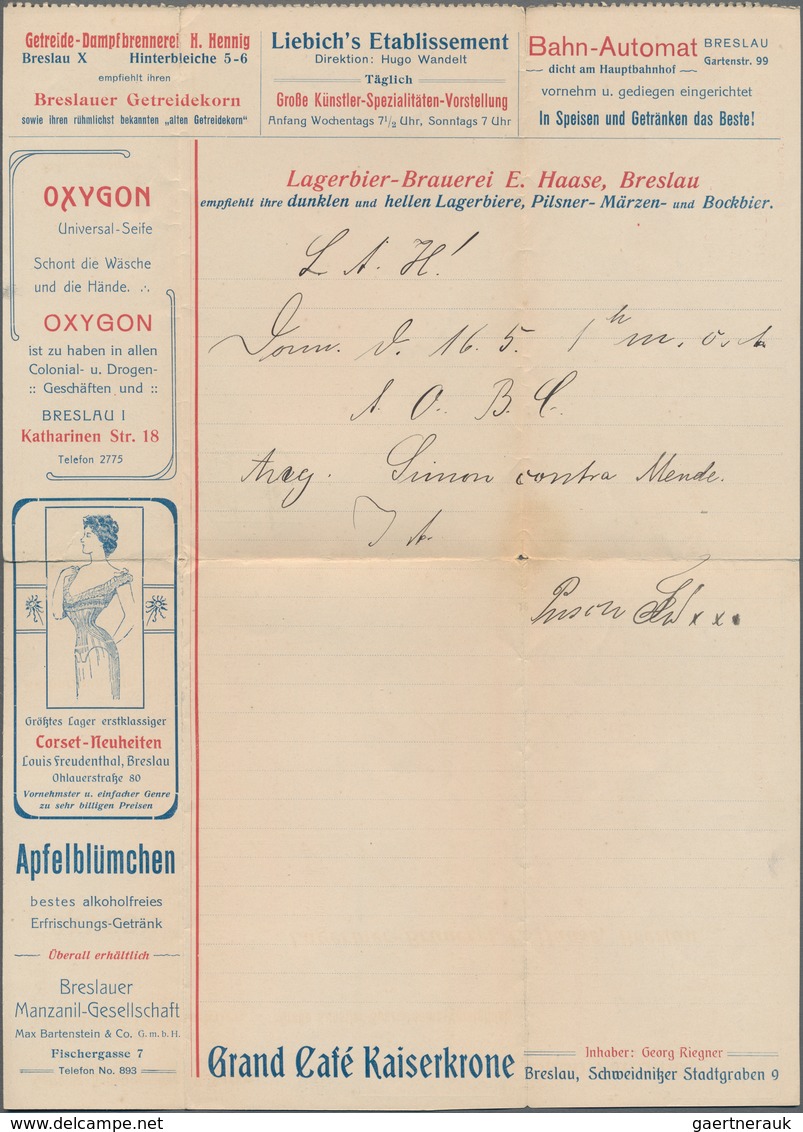 Getreide-Dampfbrennerei H. Hennig
Breslau X Hinterbleiche 5-6
empfiehlt ihren
Breslauer Getreidekorn
sowie ihren rühmlichst bekannten „alten Getreidekorn"
Liebich's Etablissement
Direktion: Hugo Wandelt
Täglich
Große Künstler-Spezialitäten-Vorstellung
Anfang Wochentags 7 1/2 Uhr, Sonntags 7 Uhr
Bahn-Automat BRESLAU
Gartenstr. 99
dicht am Hauptbahnhof
vornehm u. gediegen eingerichtet
In Speisen und Getränken das Beste!
OXYGON
Universal-Seife
Schont die Wäsche
und die Hände. .·.
OXYGON
ist zu haben in allen
Colonial- u. Drogen-
:: Geschäften und ::
BRESLAU I
Katharinen Str. 18
Telefon 2775
Größtes Lager erstklassiger
Corset-Neuheiten
Louis Freudenthal, Breslau
Ohlauerstraße 80
Vornehmster u. einfacher Genre
zu sehr billigen Preisen
Apfelblümchen
bestes alkoholfreies
Erfrischungs-Getränk
Überall erhältlich
Breslauer
Manzanil-Gesellschaft
Max Bartenstein & Co. G.m.b.H.
Fischergasse 7
Telefon No. 893
Lagerbier-Brauerei E. Haase, Breslau
empfiehlt ihre dunklen und hellen Lagerbiere, Pilsner- Märzen- und Bockbier.
L A. H!
Donn. d. 16. 5. 1 h m. c. t.
A. O. B. C.
Ang. Simon contra Mende.
J A.
xxx
Grand Café Kaiserkrone
Inhaber: Georg Riegner
Breslau, Schweidnitzer Stadtgraben 9
gaertnerauk